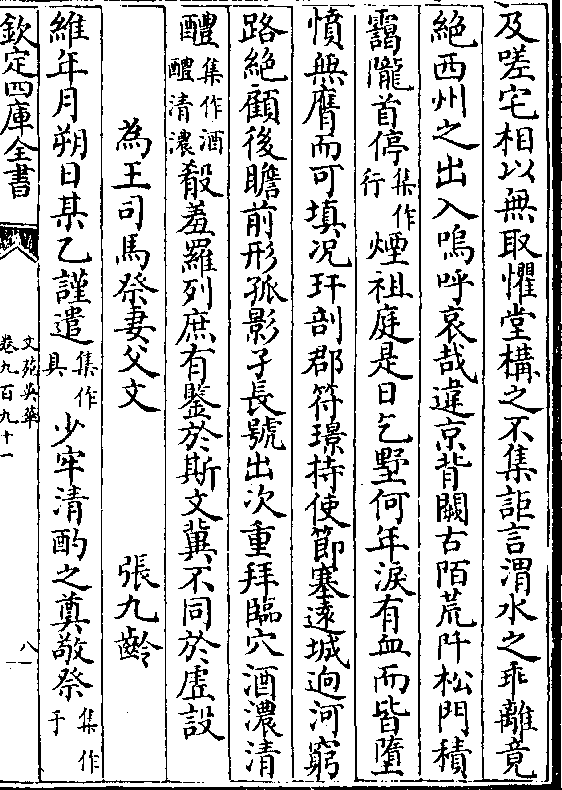 及嗟宅相以無取懼堂構之不集詎言渭水之乖離竟
絶西州之出入嗚呼哀哉違京背闕古陌荒阡松門積
靄隴首停集作行煙祖庭是日乞墅何年淚有血而皆墮
憤無膺而可填况玕剖郡符璟持使節塞遠城逈河窮
路絶顧後瞻前形孤影孑長號出次重拜臨穴酒濃清
醴集作酒醴清濃殽羞羅列庶有鑒於斯文冀不同於虚設
為王司馬祭妻父文 張九齡
維年月朔日某乙謹遣集作具少牢清酌之奠敬祭集作于
欽定四庫全書
文苑英華
卷九百九十一
八